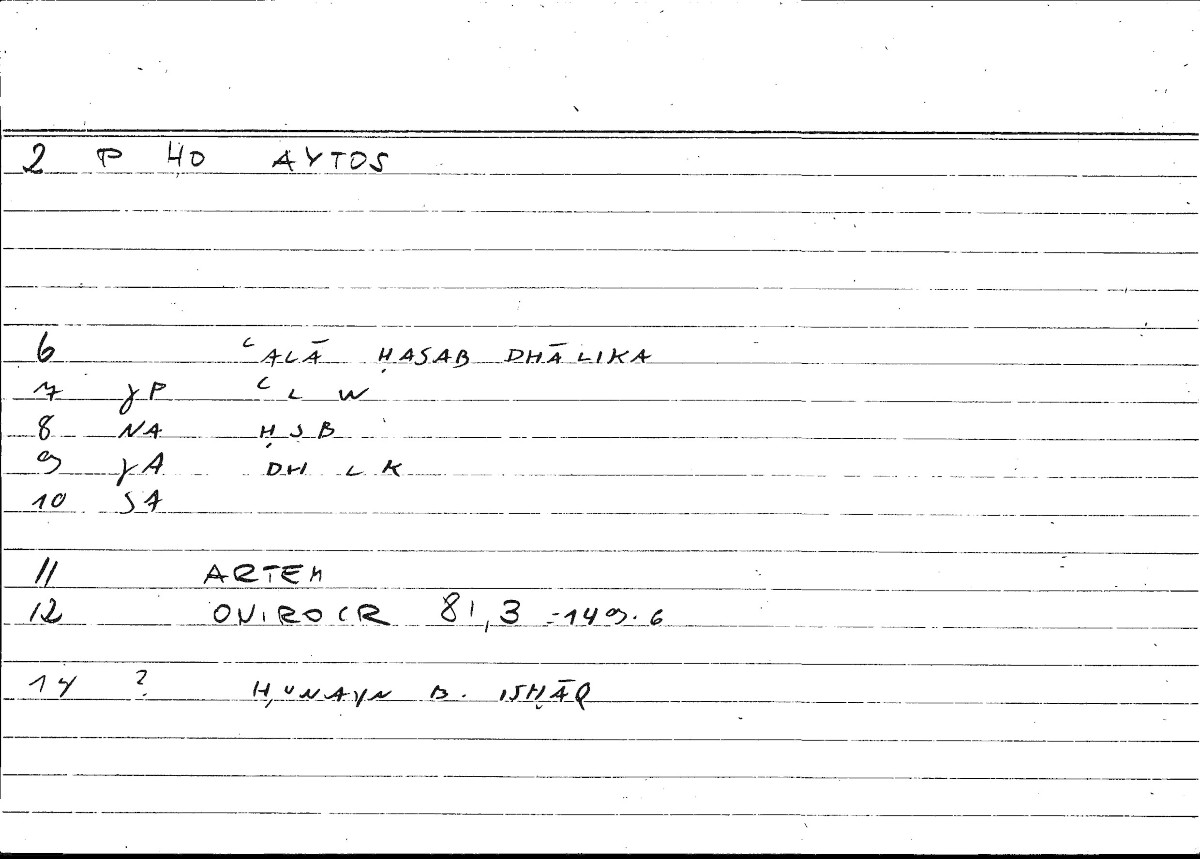 2 P 40 AYTOS
6 ʿALĀ ḤASAB DHĀLIKA
7 γP ʿ L W
8 NA Ḥ S B
9 γA DH L K
10 SA
11 ARTEM
12 ONIROCR 81,3 = 149.6
14 ? ḤUNAYN B. ISḤĀQ